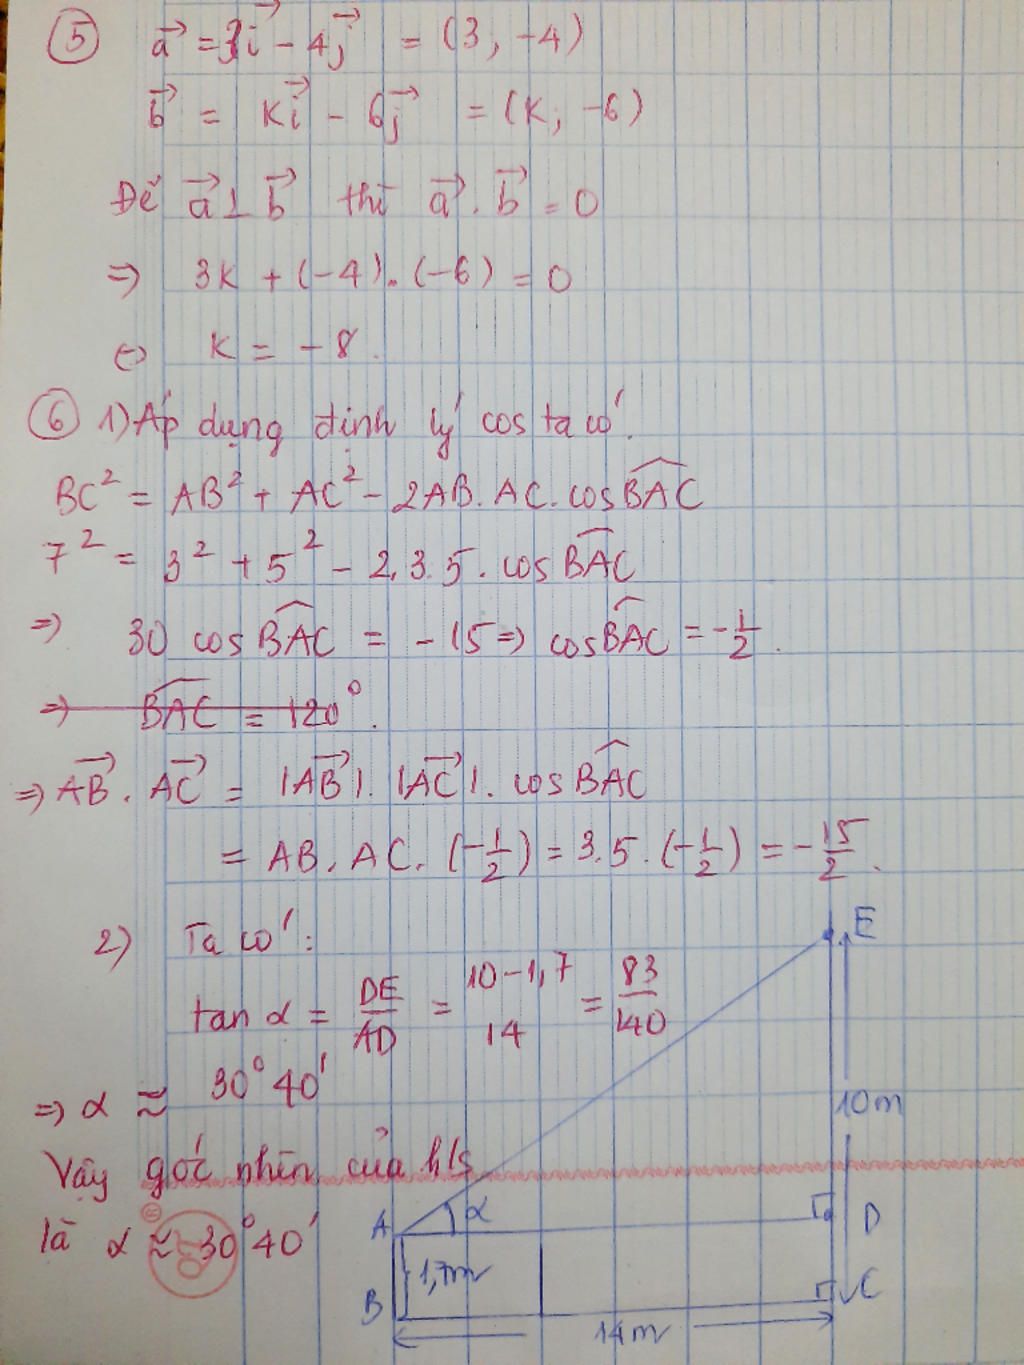 ⑤ a⃗ = 3i⃗ - 4j⃗ = (3, -4)
b⃗ = Ki⃗ - 6j⃗ = (K, -6)
Để a⃗ ⊥ b⃗ thì a⃗ . b⃗ = 0
⇒ 3K + (-4). (-6) = 0
⇔ K = -8.
⑥ 1) Áp dụng định lý cos ta có.
BC² = AB² + AC² - 2AB. AC. cos\widehat{BAC}
7² = 3² + 5² - 2.3.5. cos\widehat{BAC}
⇒ 30 cos\widehat{BAC} = -15 ⇒ cos\widehat{BAC} = -1/2.
⇒ \widehat{BAC} = 120°.
⇒ \overrightarrow{AB} . \overrightarrow{AC} = |\overrightarrow{AB}|. |\overrightarrow{AC}|. cos\widehat{BAC}
= AB. AC. (-1/2) = 3.5. (-1/2) = -15/2.
2) Ta có:
tan α = DE/AD = (10-1,7)/14 = 83/140
⇒ α ≈ 30°40'
Vậy góc nhìn của h/s
là α ≈ 30°40'
E
10m
A α D
1,7m
B C
14m